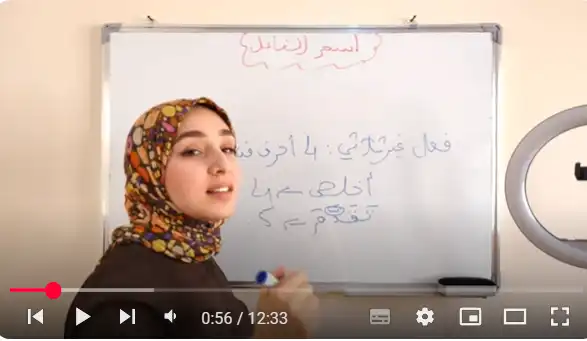 اسم الفاعل
فعل غير ثلاثي : 4 أحرف
أخلص ← 4
تَقَدَّمَ ← 5
0:56 / 12:33